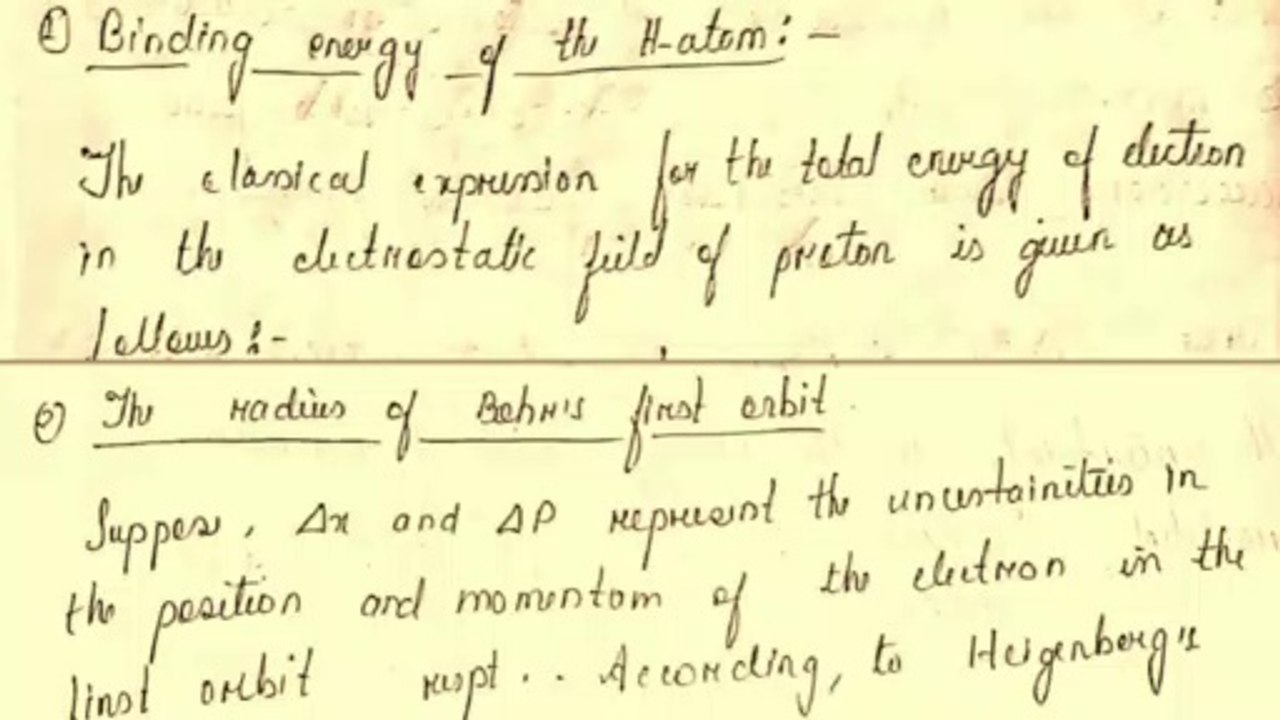 ① Binding energy of the H-atom:-
The classical expression for the total energy of electron
in the electrostatic field of proton is given as
follows:-
② The radius of Bohr's first orbit.
Suppose, Δx and ΔP represent the uncertainities in
the position and momentom of the electron in the
first orbit respt.. According, to Heigenberg's